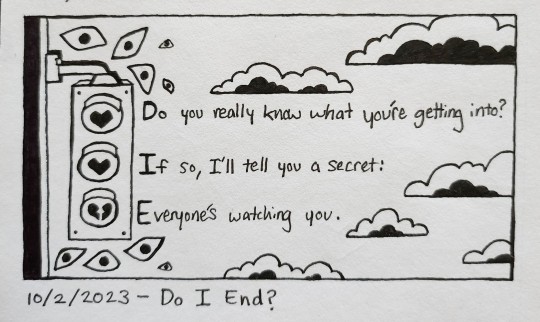 Do you really know what you're getting into?
If so, I'll tell you a secret:
Everyone's watching you.
10/2/2023 - Do I End?